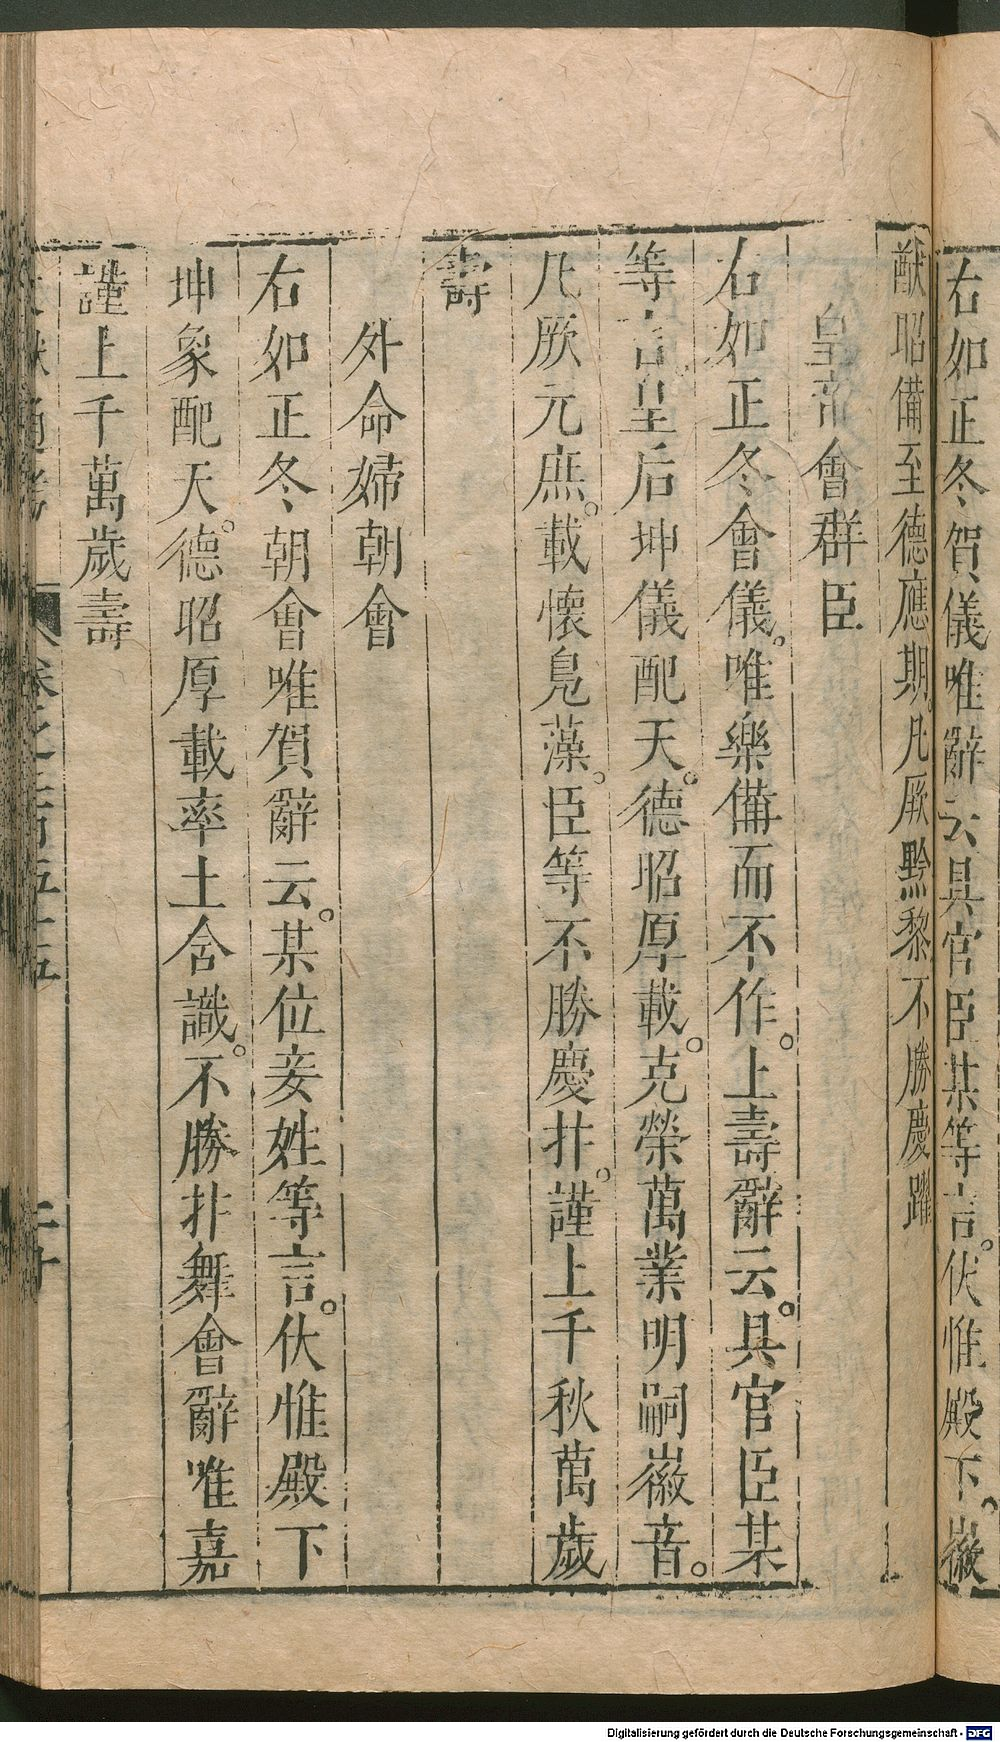 右如正冬賀儀唯辭云具官臣某等言。伏惟殿下。徽
猷昭備至德應期。凡厥黔黎不勝慶躍
皇帝會群臣
右如正冬會儀。唯樂備而不作。上壽辭云。具官臣某
等言皇后坤儀配天。德昭厚載。克榮萬業明嗣徽音。
凡厥元庶。載懷鳧藻。臣等不勝慶抃。謹上千秋萬歲
壽
外命婦朝會
右如正冬朝會唯賀辭云。某位妾姓等言。伏惟殿下
坤象配天。德昭厚載率土含識。不勝抃舞會辭唯嘉
謹上千萬歲壽
文獻通考 卷之二百五十五 二十
Digitalisierung gefördert durch die Deutsche Forschungsgemeinschaft - DFG